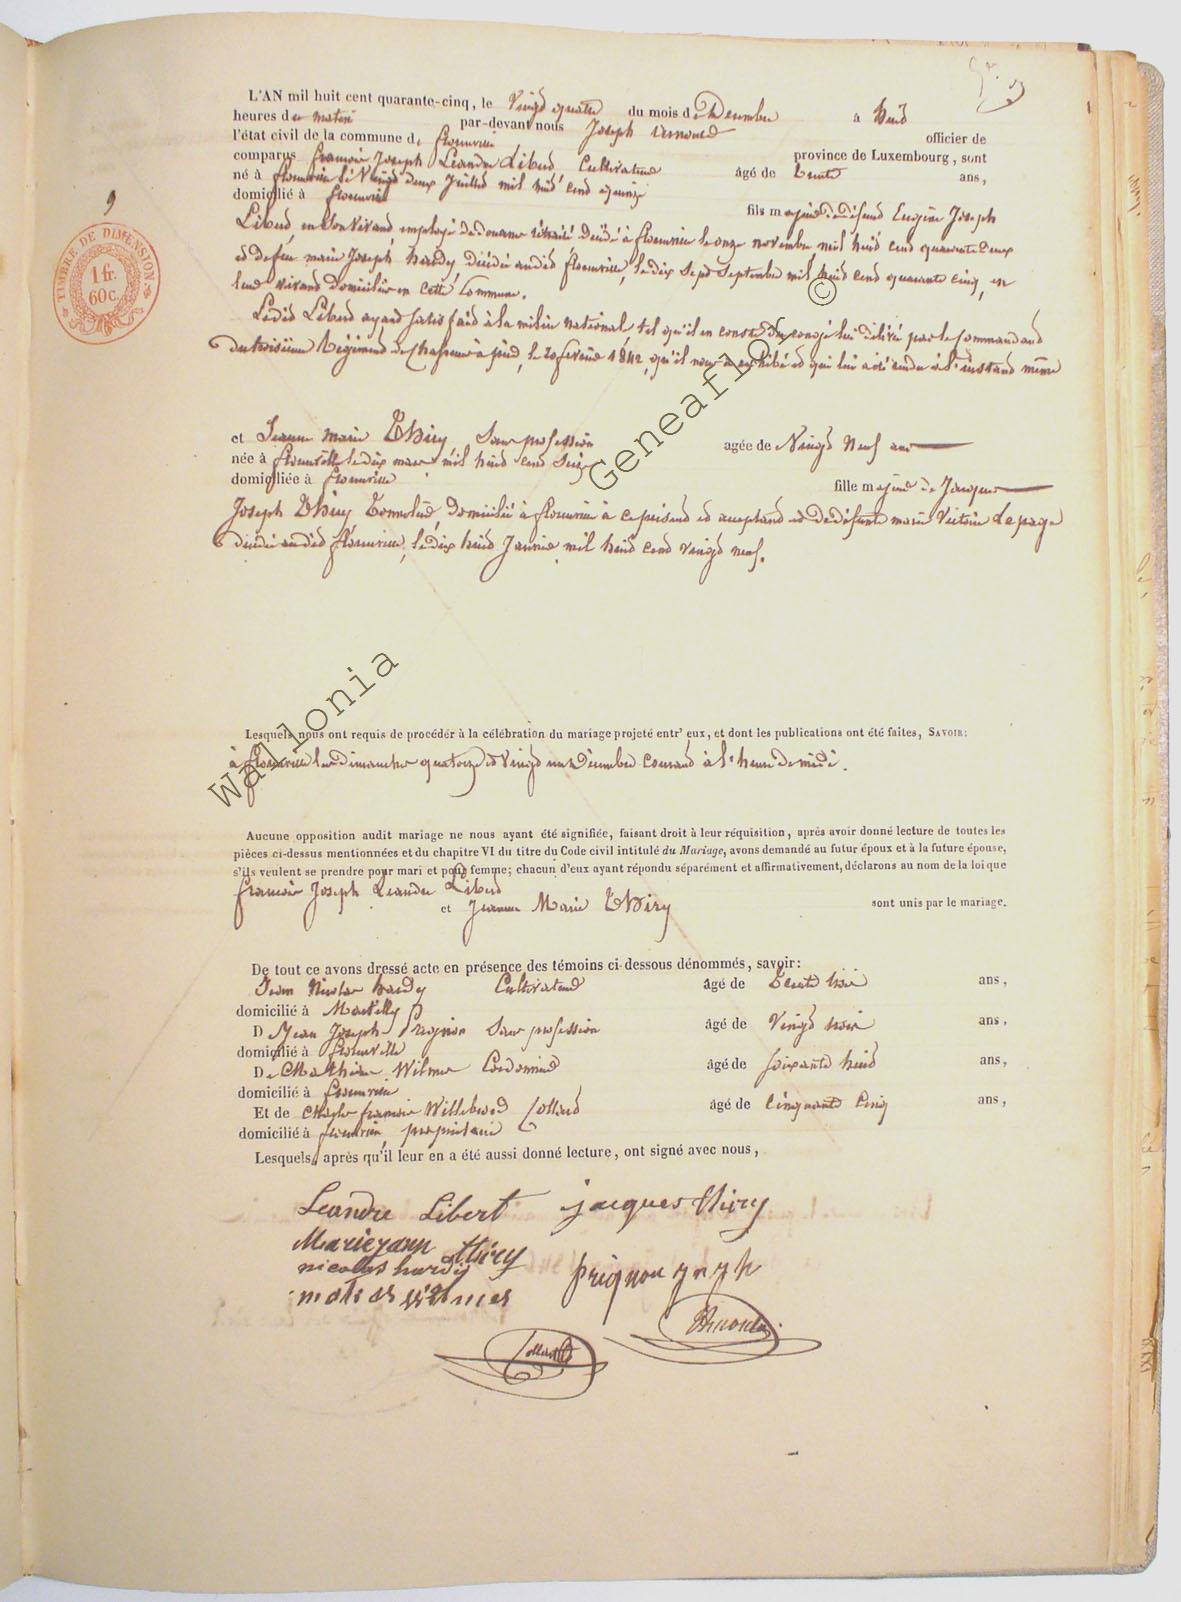 9
TIMBRE DE DIMENSION
1 fr.
60 c.
L'AN mil huit cent quarante-cinq, le Vingt quatre du mois de Decembre à huit
heures du matin par-devant nous Joseph arnould officier de
l'état civil de la commune de florenville province de Luxembourg, sont
comparus françois Joseph Leandre Libert Cultivateur âgé de trente ans,
né à florenville le Vingt deux Juillet mil huit cent quinze
domicilié à florenville fils majeur de défunt Eugène Joseph
Libert en son vivant employé de douane retraité décédé à florenville le onze novembre mil huit cent quarante deux
et de feu marie Joseph hardy décédée audit florenville, le dix sept Septembre mil huit cent quarante cinq, en
leur vivant domiciliés en cette Commune.
Ledit Libert ayant satisfait à la milice nationale, tel qu'il en conste du congé lui délivré par le Commandant
du troisième Régiment de Chasseurs à pied, le 20 février 1842, qu'il nous a exhibé et qui lui a été rendu à l'instant même
et Jeanne marie Thiry, Sans profession agée de Vingt Neuf ans
née à florenville le dix mars mil huit cent Seize
domiciliée à florenville fille majeure de Jacques
Joseph Thiry domicilié à florenville à ce présent et acceptant et de défunte marie Victoire Lepage
décédée audit florenville, le dix huit Janvier mil huit cent vingt neuf.
Lesquels nous ont requis de procéder à la célébration du mariage projeté entr' eux, et dont les publications ont été faites, SAVOIR:
à florenville les dimanches quatorze et Vingt un Décembre Courant à l'heure de midi.
Aucune opposition audit mariage ne nous ayant été signifiée, faisant droit à leur réquisition, après avoir donné lecture de toutes les
pièces ci-dessus mentionnées et du chapitre VI du titre du Code civil intitulé du Mariage, avons demandé au futur époux et à la future épouse,
s'ils veulent se prendre pour mari et pour femme; chacun d'eux ayant répondu séparément et affirmativement, déclarons au nom de la loi que
françois Joseph Leandre Libert
et Jeanne Marie Thiry sont unis par le mariage.
De tout ce avons dressé acte en présence des témoins ci-dessous dénommés, savoir:
Jean Nicolas hardy Cultivateur âgé de trente trois ans,
domicilié à Martilly
D Jean Joseph Prignon Sans profession âgé de Vingt trois ans,
domicilié à florenville
De Mathias Wilmes Cordonnier âgé de soixante huit ans,
domicilié à florenville
Et de Charles françois Willebrod Collard âgé de Cinquante Cinq ans,
domicilié à florenville, propriétaire
Lesquels, après qu'il leur en a été aussi donné lecture, ont signé avec nous,
Leandre Libert jacques thiry
Marie jeann thiry
nicolas hardy prignon
Collard Arnould
Wallonia Geneaflor ©